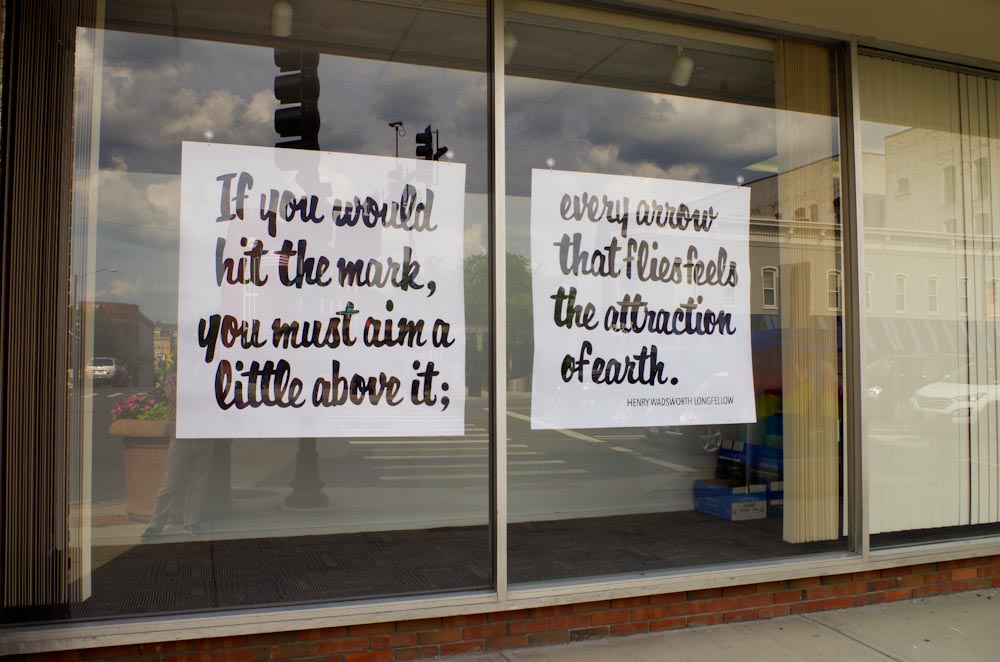 If you would
hit the mark,
you must aim a
little above it;
every arrow
that flies feels
the attraction
of earth.
HENRY WADSWORTH LONGFELLOW